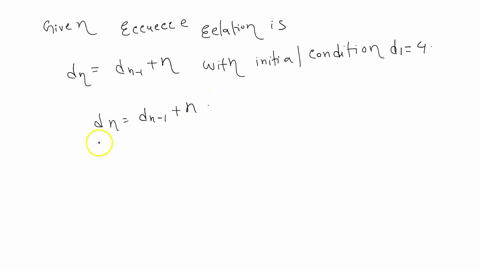 Given Eccuecce Eelation is
dn = dn-1 + n with initial condition d1 = 4.
dn = dn-1 + n.